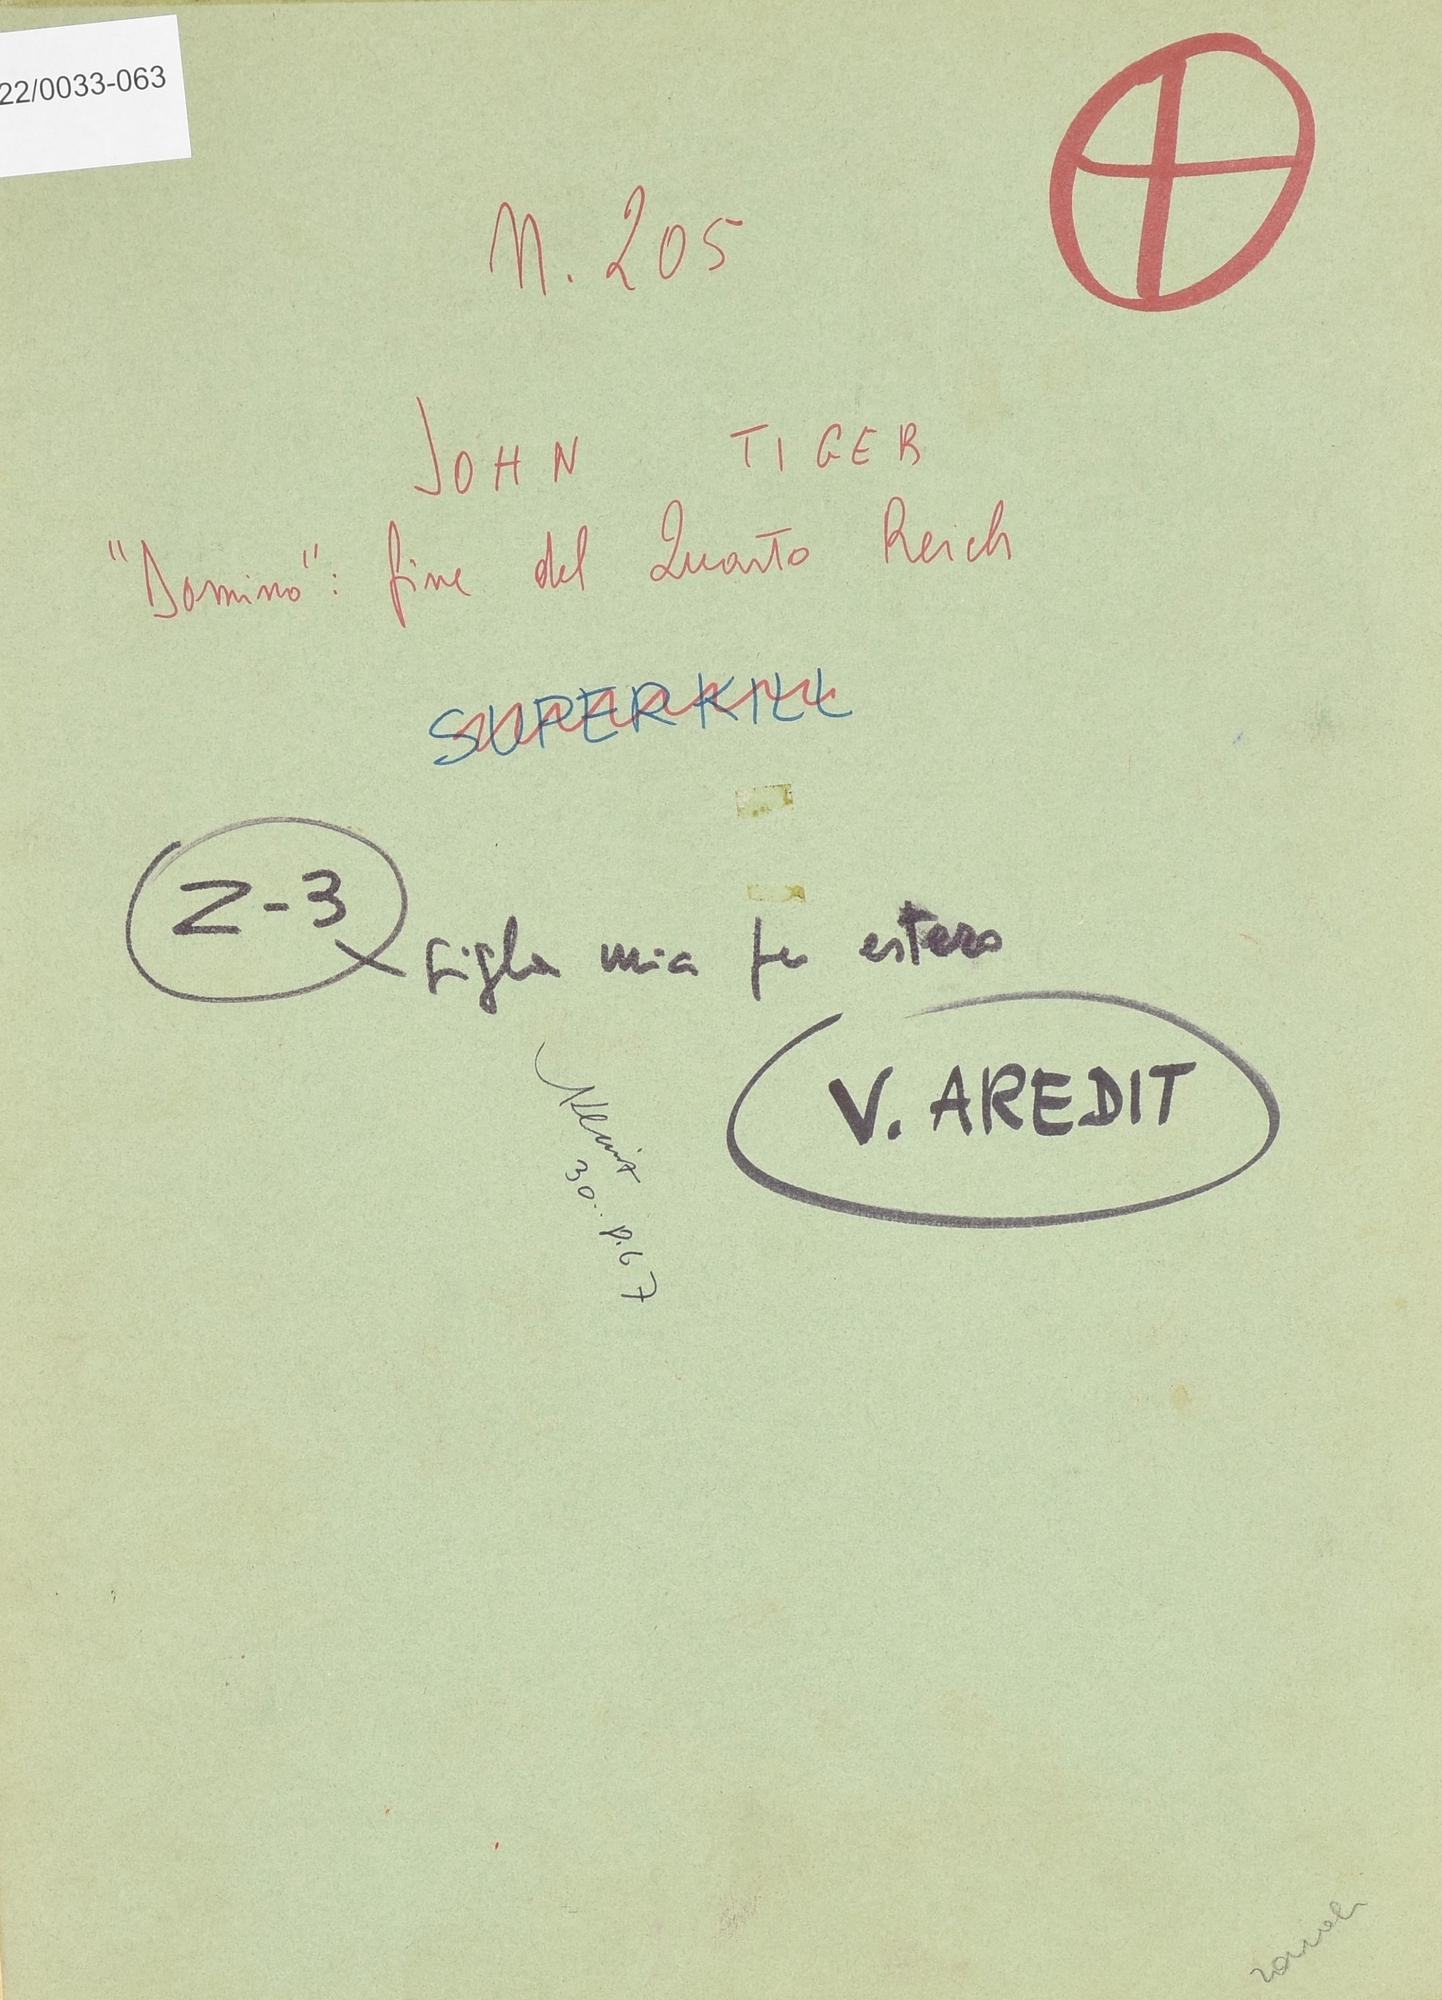 22/0033-063
N. 205
JOHN TIGER
"Domino": fine del Quarto Reich
SUPERKILL
Z-3
sigla mia per estero
V. AREDIT
30.. p. 67